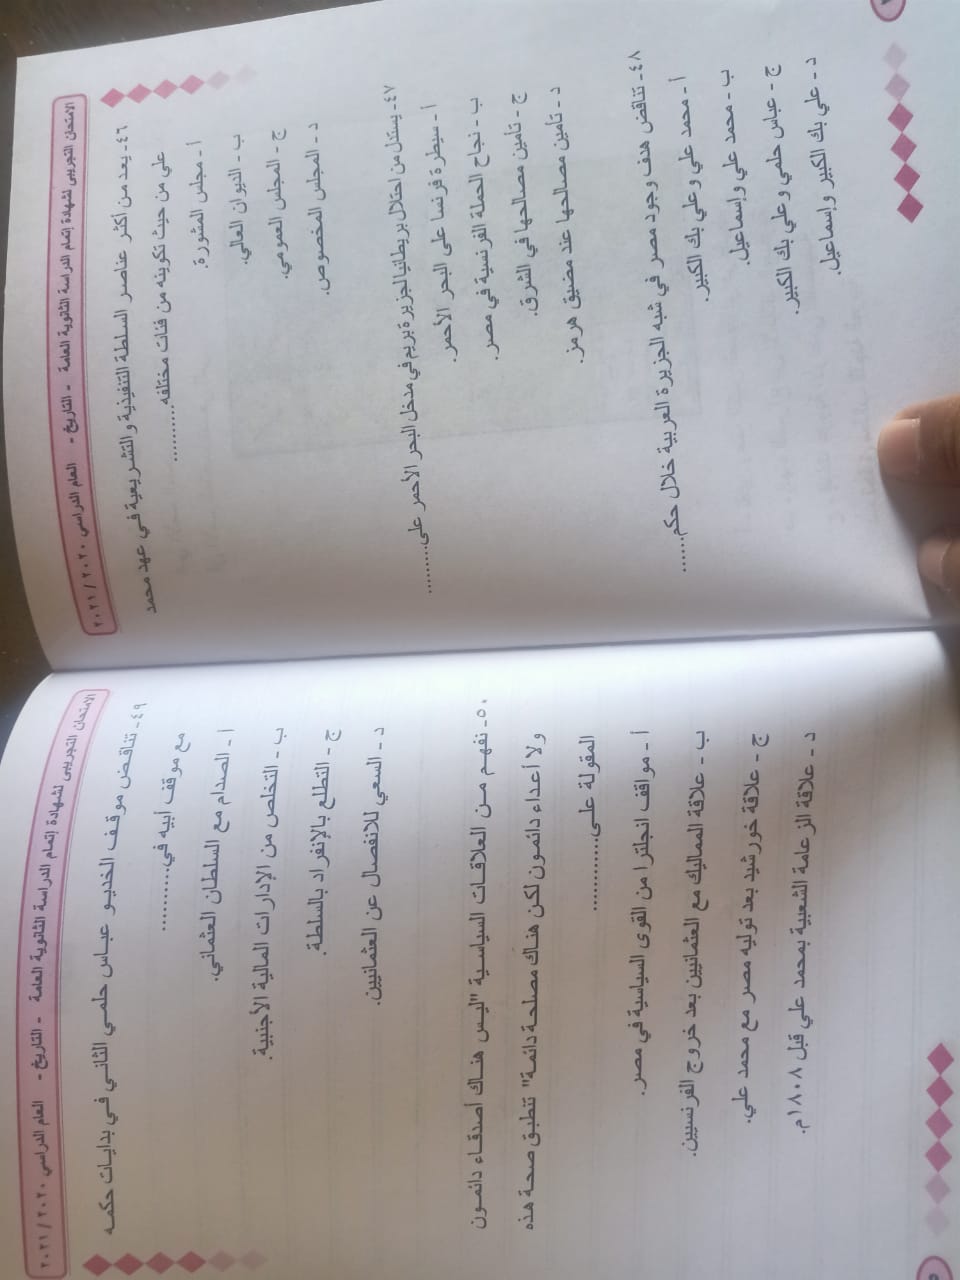 الامتحان التجريبى لشهادة إتمام الدراسة الثانوية العامة - التاريخ - العام الدراسي ٢٠٢٠ / ٢٠٢١
٤٦- يعد من أكثر عناصر السلطة التنفيذية والتشريعية في عهد محمد
علي من حيث تكوينه من فئات مختلفه..........
أ - مجلس المشورة.
ب - الديوان العالي.
ج - المجلس العمومي.
د - المجلس المخصوص.
٤٧- يستدل من احتلال بريطانيا لجزيرة بريم في مدخل البحر الأحمر على.........
أ - سيطرة فرنسا على البحر الأحمر.
ب - نجاح الحملة الفرنسية في مصر.
ج - تامين مصالحها في الشرق.
د - تامين مصالحها عند مضيق هرمز.
٤٨- تناقض هدف وجود مصر في شبه الجزيرة العربية خلال حكم......
أ - محمد علي وعلي بك الكبير.
ب - محمد علي وإسماعيل.
ج - عباس حلمي وعلي بك الكبير.
د - علي بك الكبير وإسماعيل.
الامتحان التجريبى لشهادة إتمام الدراسة الثانوية العامة - التاريخ - العام الدراسي ٢٠٢٠ / ٢٠٢١
٤٩- تناقض موقف الخديو عباس حلمي الثاني في بدايات حكمه
مع موقف أبيه في..........
أ - الصدام مع السلطان العثماني.
ب - التخلص من الإدارات المالية الأجنبية.
ج - التطلع بالإنفراد بالسلطة.
د - السعي للانفصال عن العثمانيين.
٥٠- نفهم من العلاقات السياسية "ليس هناك أصدقاء دائمون
ولا أعداء دائمون لكن هناك مصلحة دائمة" تتطبق صحة هذه
المقولة على..........
أ - مواقف انجلترا من القوى السياسية في مصر.
ب - علاقة المماليك مع العثمانيين بعد خروج الفرنسيين.
ج - علاقة خورشيد بعد توليه مصر مع محمد علي.
د - علاقة الزعامة الشعبية بمحمد علي قبل ١٨٠٨م.